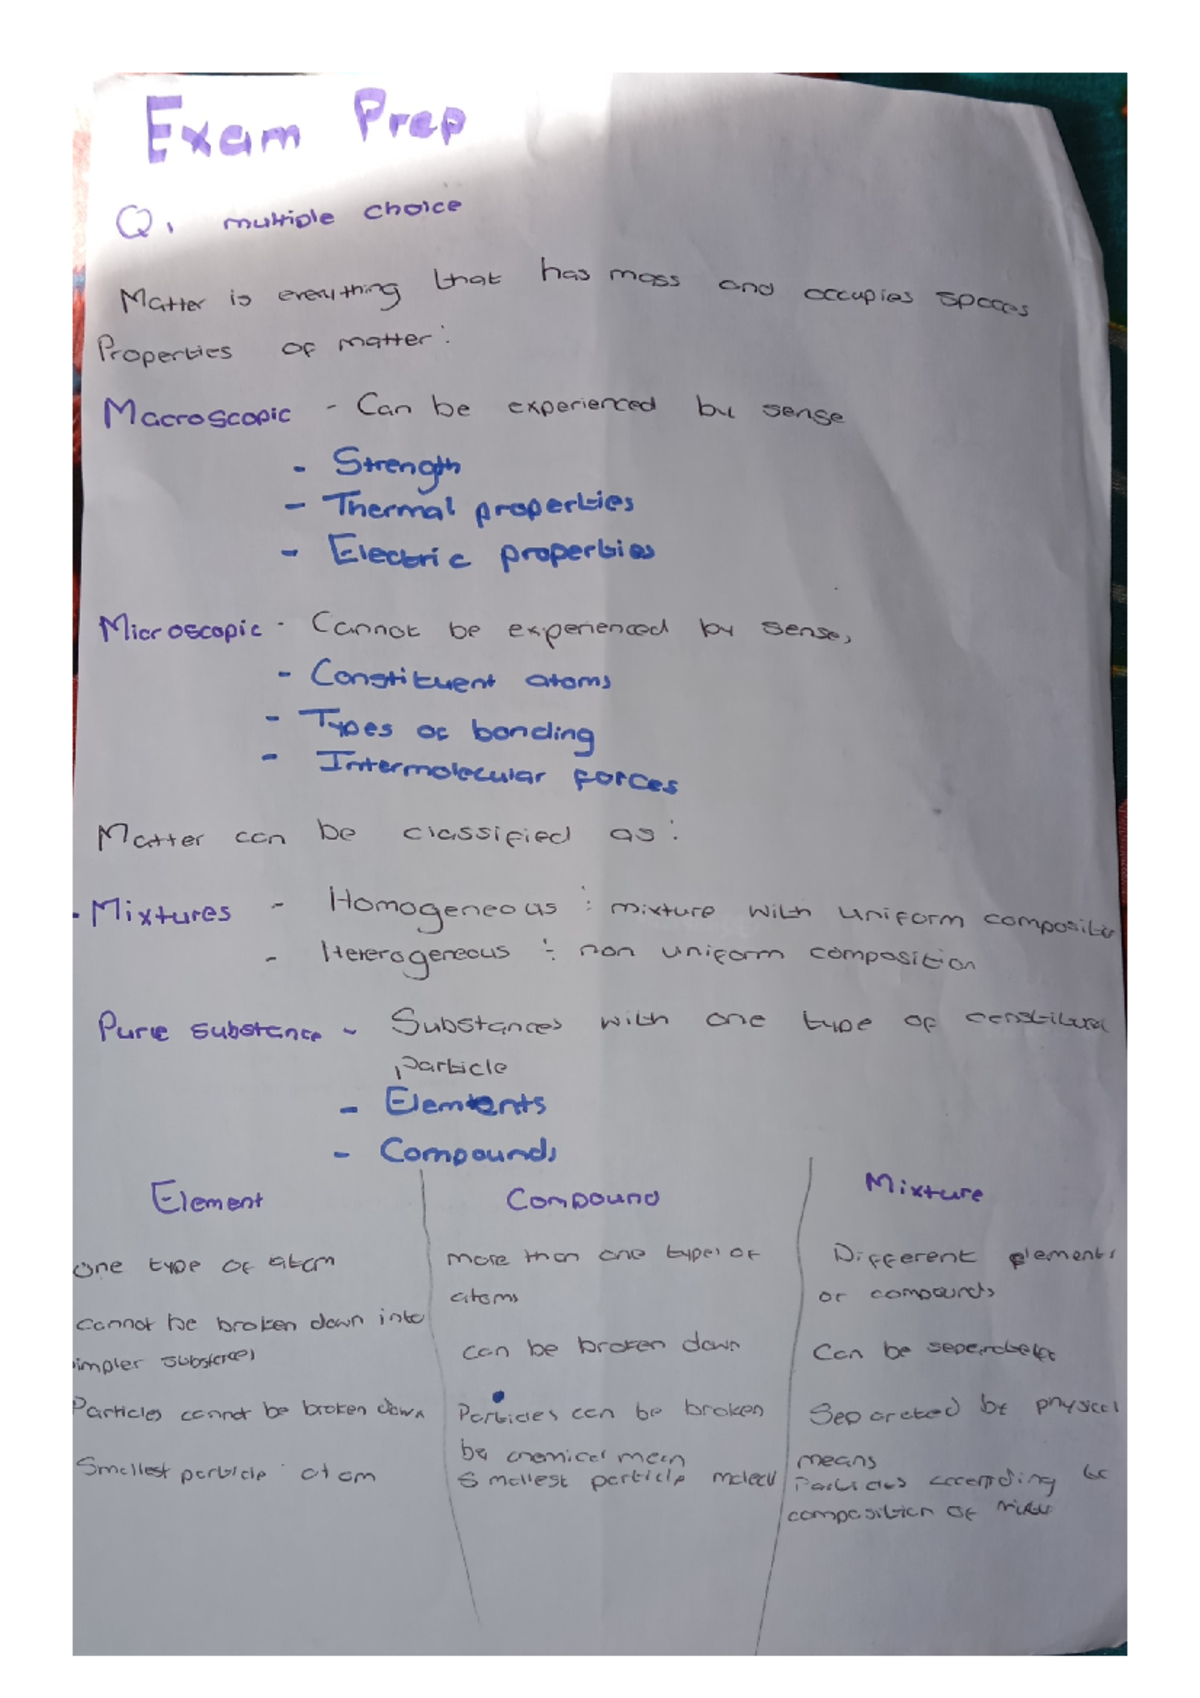 Exam Prep
Q1 multiple choice
Matter is everything that has mass and occupies spaces
Properties of matter:
Macroscopic - Can be experienced by sense
- Strength
- Thermal properties
- Electric properties
Microscopic - Cannot be experienced by sense,
- Constituent atoms
- Types of bonding
- Intermolecular forces
Matter can be classified as:
- Mixtures - Homogeneous : mixture with uniform compositio
- Heterogeneous : non uniform composition
Pure substance - Substances with one type of
particle
- Elements
- Compounds
Element Compound Mixture
one type of atom more than one types of Different elements
atoms or compounds
cannot be broken down into can be broken down Can be
impler substances
Particles cannot be broken down Particles can be broken Separated by physical
be chemical mean means
Smallest particle atom Smallest particle molecu Particles according to
composition of